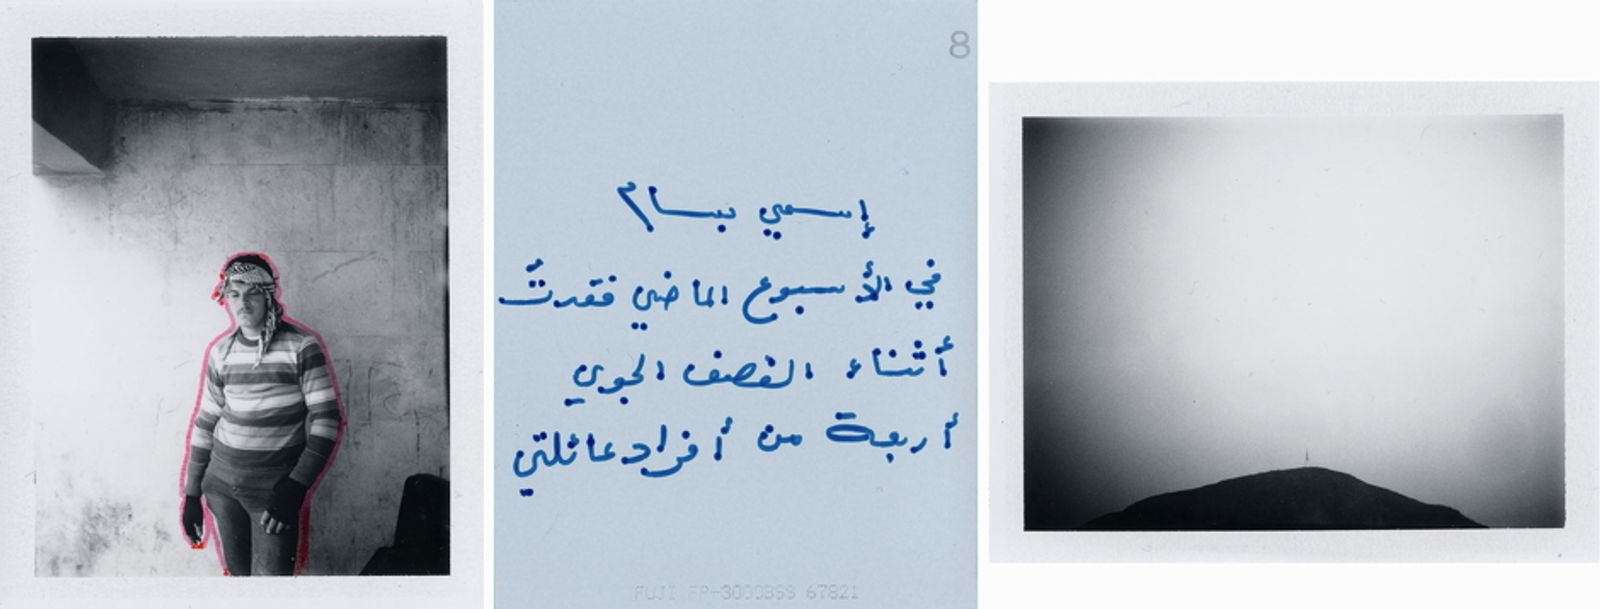 8
إسمي بسام
في الأسبوع الماضي فقدتُ
أثناء القصف الجوي
أربعة من أفراد عائلتي
FUJI FP-3000BSS 67821